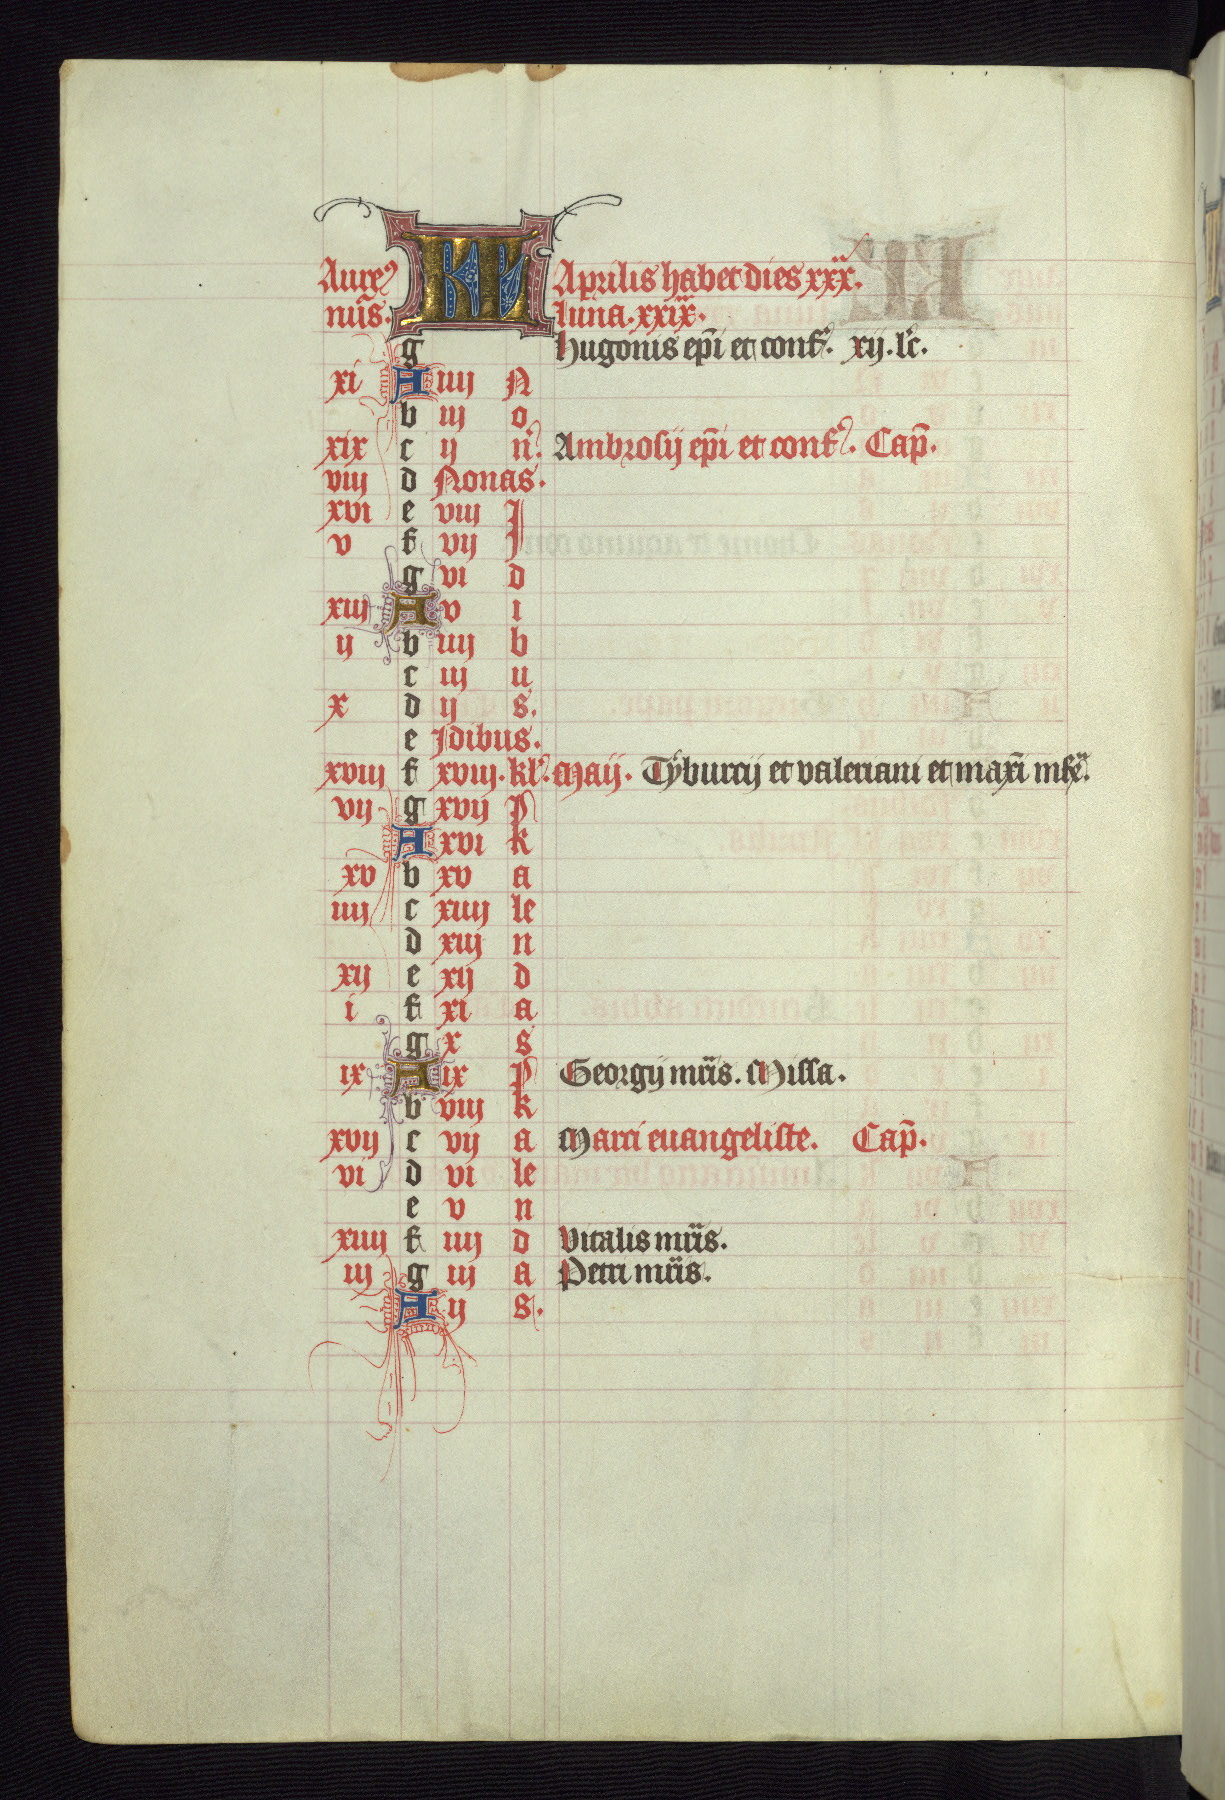 Aureꝰ KL Aprilis habet dies xxx.
nūs. luna. xxix.
g hugonis ep̄i et conf. xij. lc̄.
xi A iiij N
b iij o
xix c ij n. Ambrosij ep̄i et conf. Cap̄.
viij d Nonas.
xvi e viij J
v f vij
g vi d
xiij A v i
ij b iiij b
c iij u
x d ij s.
e Jdibus.
xviij f xviij. kl. Maij. Tyburcij et valeriani et maxī
vij g xvij P
A xvi k
xv b xv a
iiij c xiiij le
d xiij n
xij e xij d
i f xi a
g x s
ix A ix P Georgij mr̄is. Missa.
b viij k
xvij c vij a Marci euangeliste. Cap̄.
vi d vi le
e v n
xiiij f iiij d Vitalis mr̄is.
iij g iij a Petri mr̄is.
A ij s.